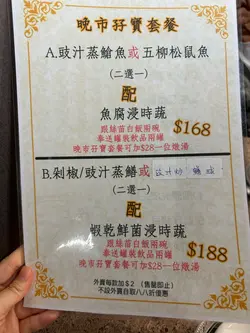 晚市孖寶套餐
A.豉汁蒸鯧魚或五柳松鼠魚
(二選一)
配
魚腐浸時蔬
跟絲苗白飯兩碗
奉送罐裝飲品兩罐
晚市孖寶套餐可加$28一位燉湯
$168
B.剁椒/豉汁蒸鱔或
(二選一)
配
蝦乾鮮菌浸時蔬
跟絲苗白飯兩碗
奉送罐裝飲品兩罐
晚市孖寶套餐可加$28一位燉湯
$188
外賣每款加$2 (售罄即止)
不設外賣自取八八折優惠